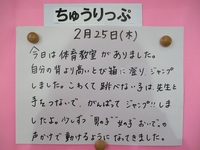 ちゅうりっぷ
2月25日(木)
今日は体育教室がありました。
自分の背より高いとび箱に登り、ジャンプ
しました。こわくて跳べない子は、先生と
手をつないで、がんばってジャンプ!!しま
したよ。少しずつ"男の子""女の子"おいで。の
声かけで動けるようになってきました。